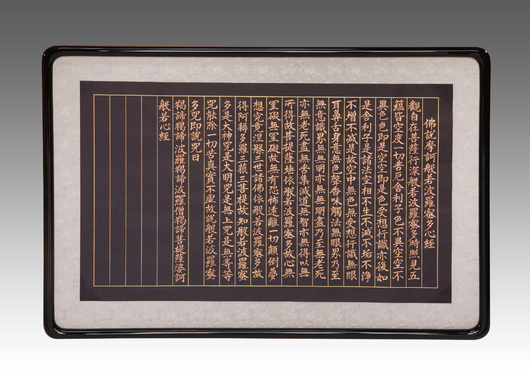 佛說摩訶般若波羅蜜多心經
觀自在菩薩行深般若波羅蜜多時照見五
蘊皆空度一切苦厄舍利子色不異空空不
異色色即是空空即是色受想行識亦復如
是舍利子是諸法空相不生不滅不垢不淨
不增不減是故空中無色無受想行識無眼
耳鼻舌身意無色聲香味觸法無眼界乃至
無意識界無無明亦無無明盡乃至無老死
亦無老死盡無苦集滅道無智亦無得以無
所得故菩提薩埵依般若波羅蜜多故心無
罣礙無罣礙故無有恐怖遠離一切顛倒夢
想究竟涅槃三世諸佛依般若波羅蜜多故
得阿耨多羅三藐三菩提故知般若波羅蜜
多是大神咒是大明咒是無上咒是無等等
咒能除一切苦真實不虛故說般若波羅蜜
多咒即說咒曰
羯諦羯諦 波羅羯諦 波羅僧羯諦 菩提薩婆訶
般若心經